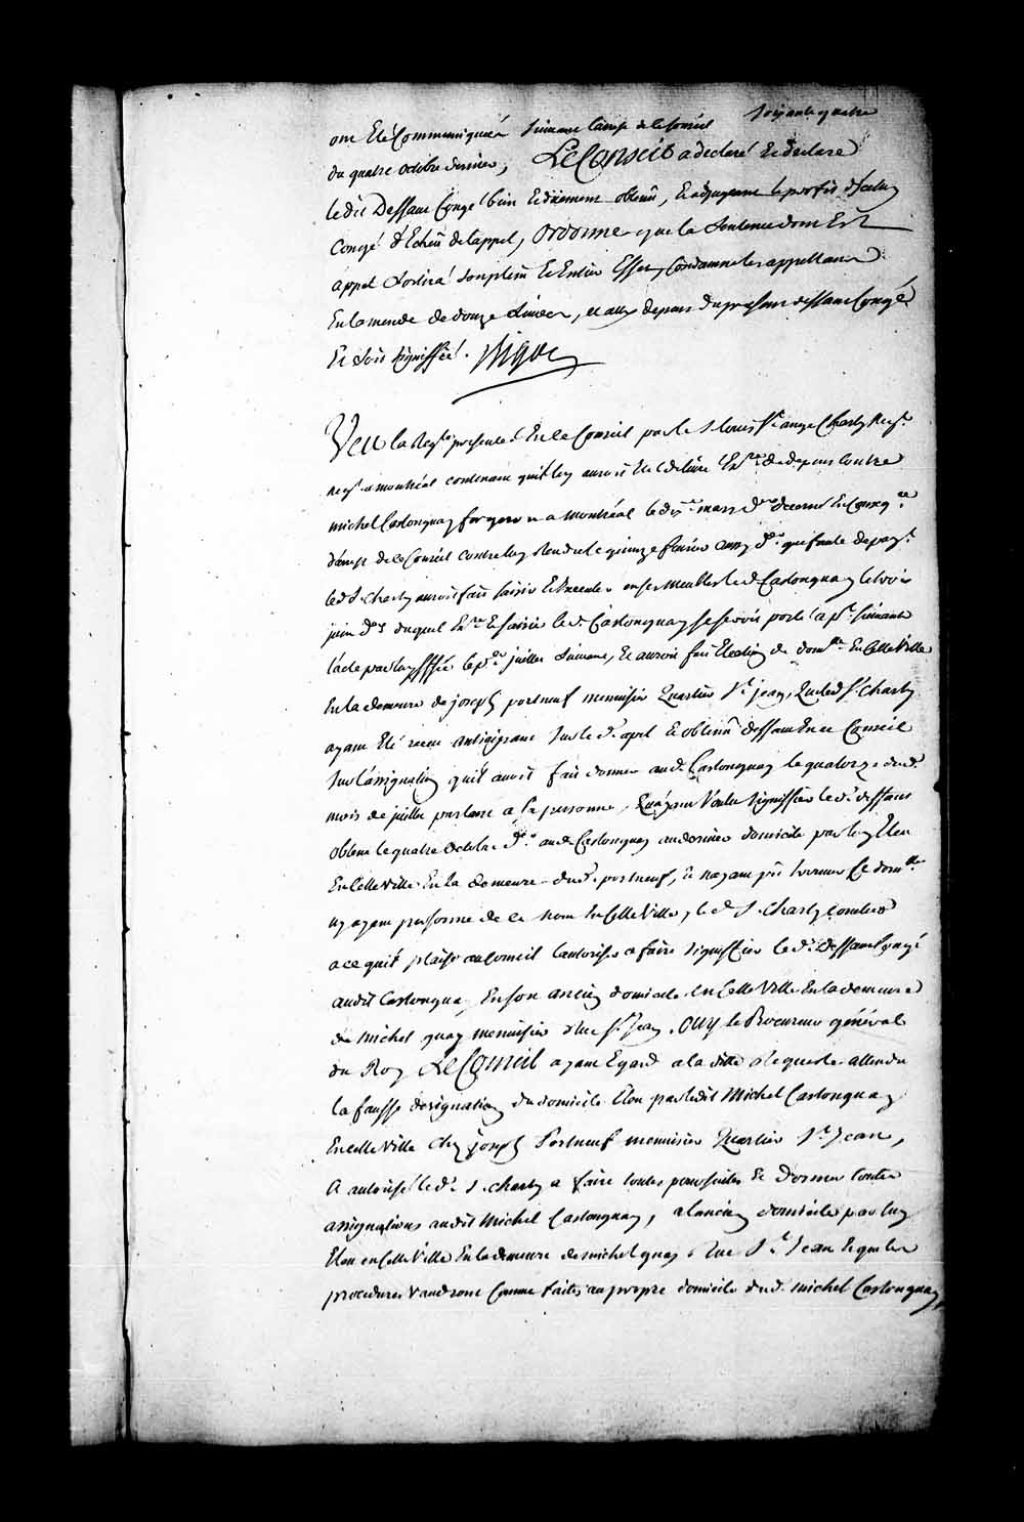 Soixante quatre
ont Eté Communiquées suivant l'arrest de ce Conseil
du quatre octobre dernier, Le Conseil a declaré Et declare
le dit Deffaut Congé bien Et düement obtenu, Et adjugeant le proffit d'Iceluy
Congé d'Echeu de l'appel, ordonne que la Sentence dont Est
appel Sortira Son plein Et Entier Effet, Condamne les appellants
En l'amende de douze Livres, et aux depens du present deffaut Congé
Et soit signiffié. Bigot
Veu la Reqte presentée En ce Conseil par le S. Louis St. ange Charly Negt.
a montréal contenant qu'il luy auroit Eté delivré Exre. de depens Contre
michel Castonguay forgeron a montréal le mars der. decerné En Conseqce.
d'arrest de ce Conseil contre luy Rendu le quinze fevrier aussy der. que faute de payt.
led. S. Charly auroit fait saisir Et Executer en ses meubles led. Castonguay le trois
juin der. duquel Exre. Et saisie led. Castonguay se seroit porté apt. suivant
l'acte par luy Siffié le per. juillet suivant, Et auroit fait Election de domlle. En Cette Ville
En la demeure de joseph portneuf menuisier Quartier St. jean, Que led. S. Charly
ayant Eté receu anticipant sur le d. apel Et obtenu deffaut En ce Conseil
Sur l'assignation qu'il avoit fait donner aud. Castonguay le quatorze dud.
mois de juillet parlant a Sa personne, Que ayant Voulu Signiffier led. deffaut
obtenu le quatre octobre der. aud. Castonguay au dernier domicile par luy Eleu
En Cette Ville En la demeure dud. portneuf, Et n'ayant pû trouver Ce domlle.
ny ayant personne de ce nom En Cette Ville, led. S. Charly conclud
a ce qu'il plaise au Conseil l'autoriser a faire signiffier led. deffaut Congé
audit Castonguay En son ancien domicile En Cette Ville En la demeure
de michel guay menuisier rue St. Jean. Ouy le Procureur général
du Roy Le Conseil ayant Egard a la ditte Requeste attendu
la fausse designation du domicile Eleu par ledit Michel Castonguay
En cette Ville Chez joseph Portneuf menuisier Quartier St. Jean,
A autorisé led. S. charly a faire toutes poursuites Et donner toutes
assignations audit Michel Castonguay, a l'ancien domicile par luy
Eleu en Cette Ville En la demeure de michel guay Rue St. Jean lesquelles
procedures Vaudront Comme faites au propre domicile dud. michel Castonguay,